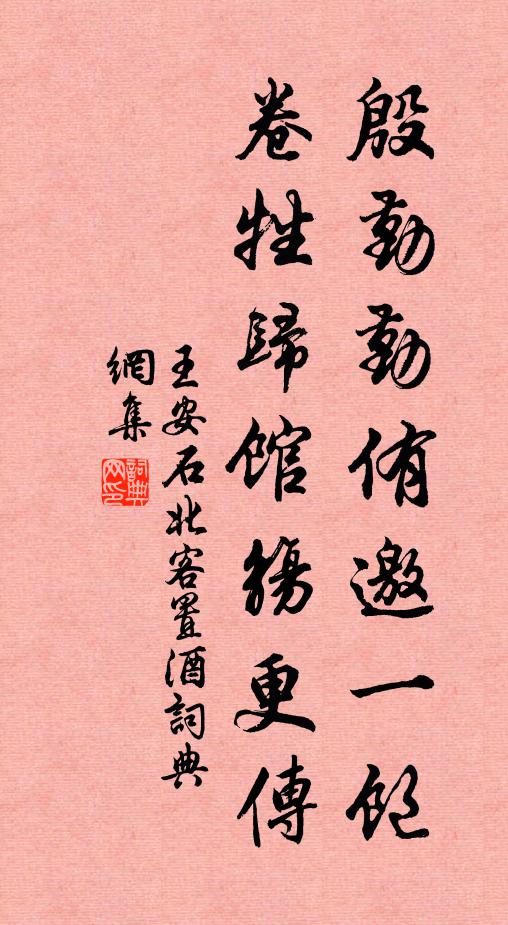 殷勤勤侑邀一飽
卷牲歸館觴更傳
王安石北客置酒詞典
網集
詞典
网印